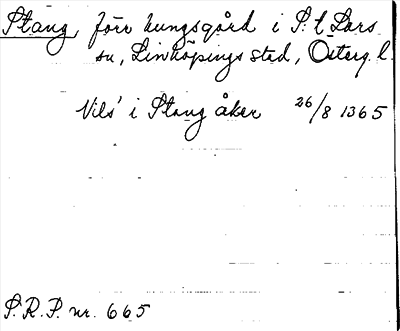 Stang, förr kungsgård i S:t Lars
sn, Linköpings stad, Österg. l.
Nils' i Stang åker 26/8 1365
S.R.P. nr. 665